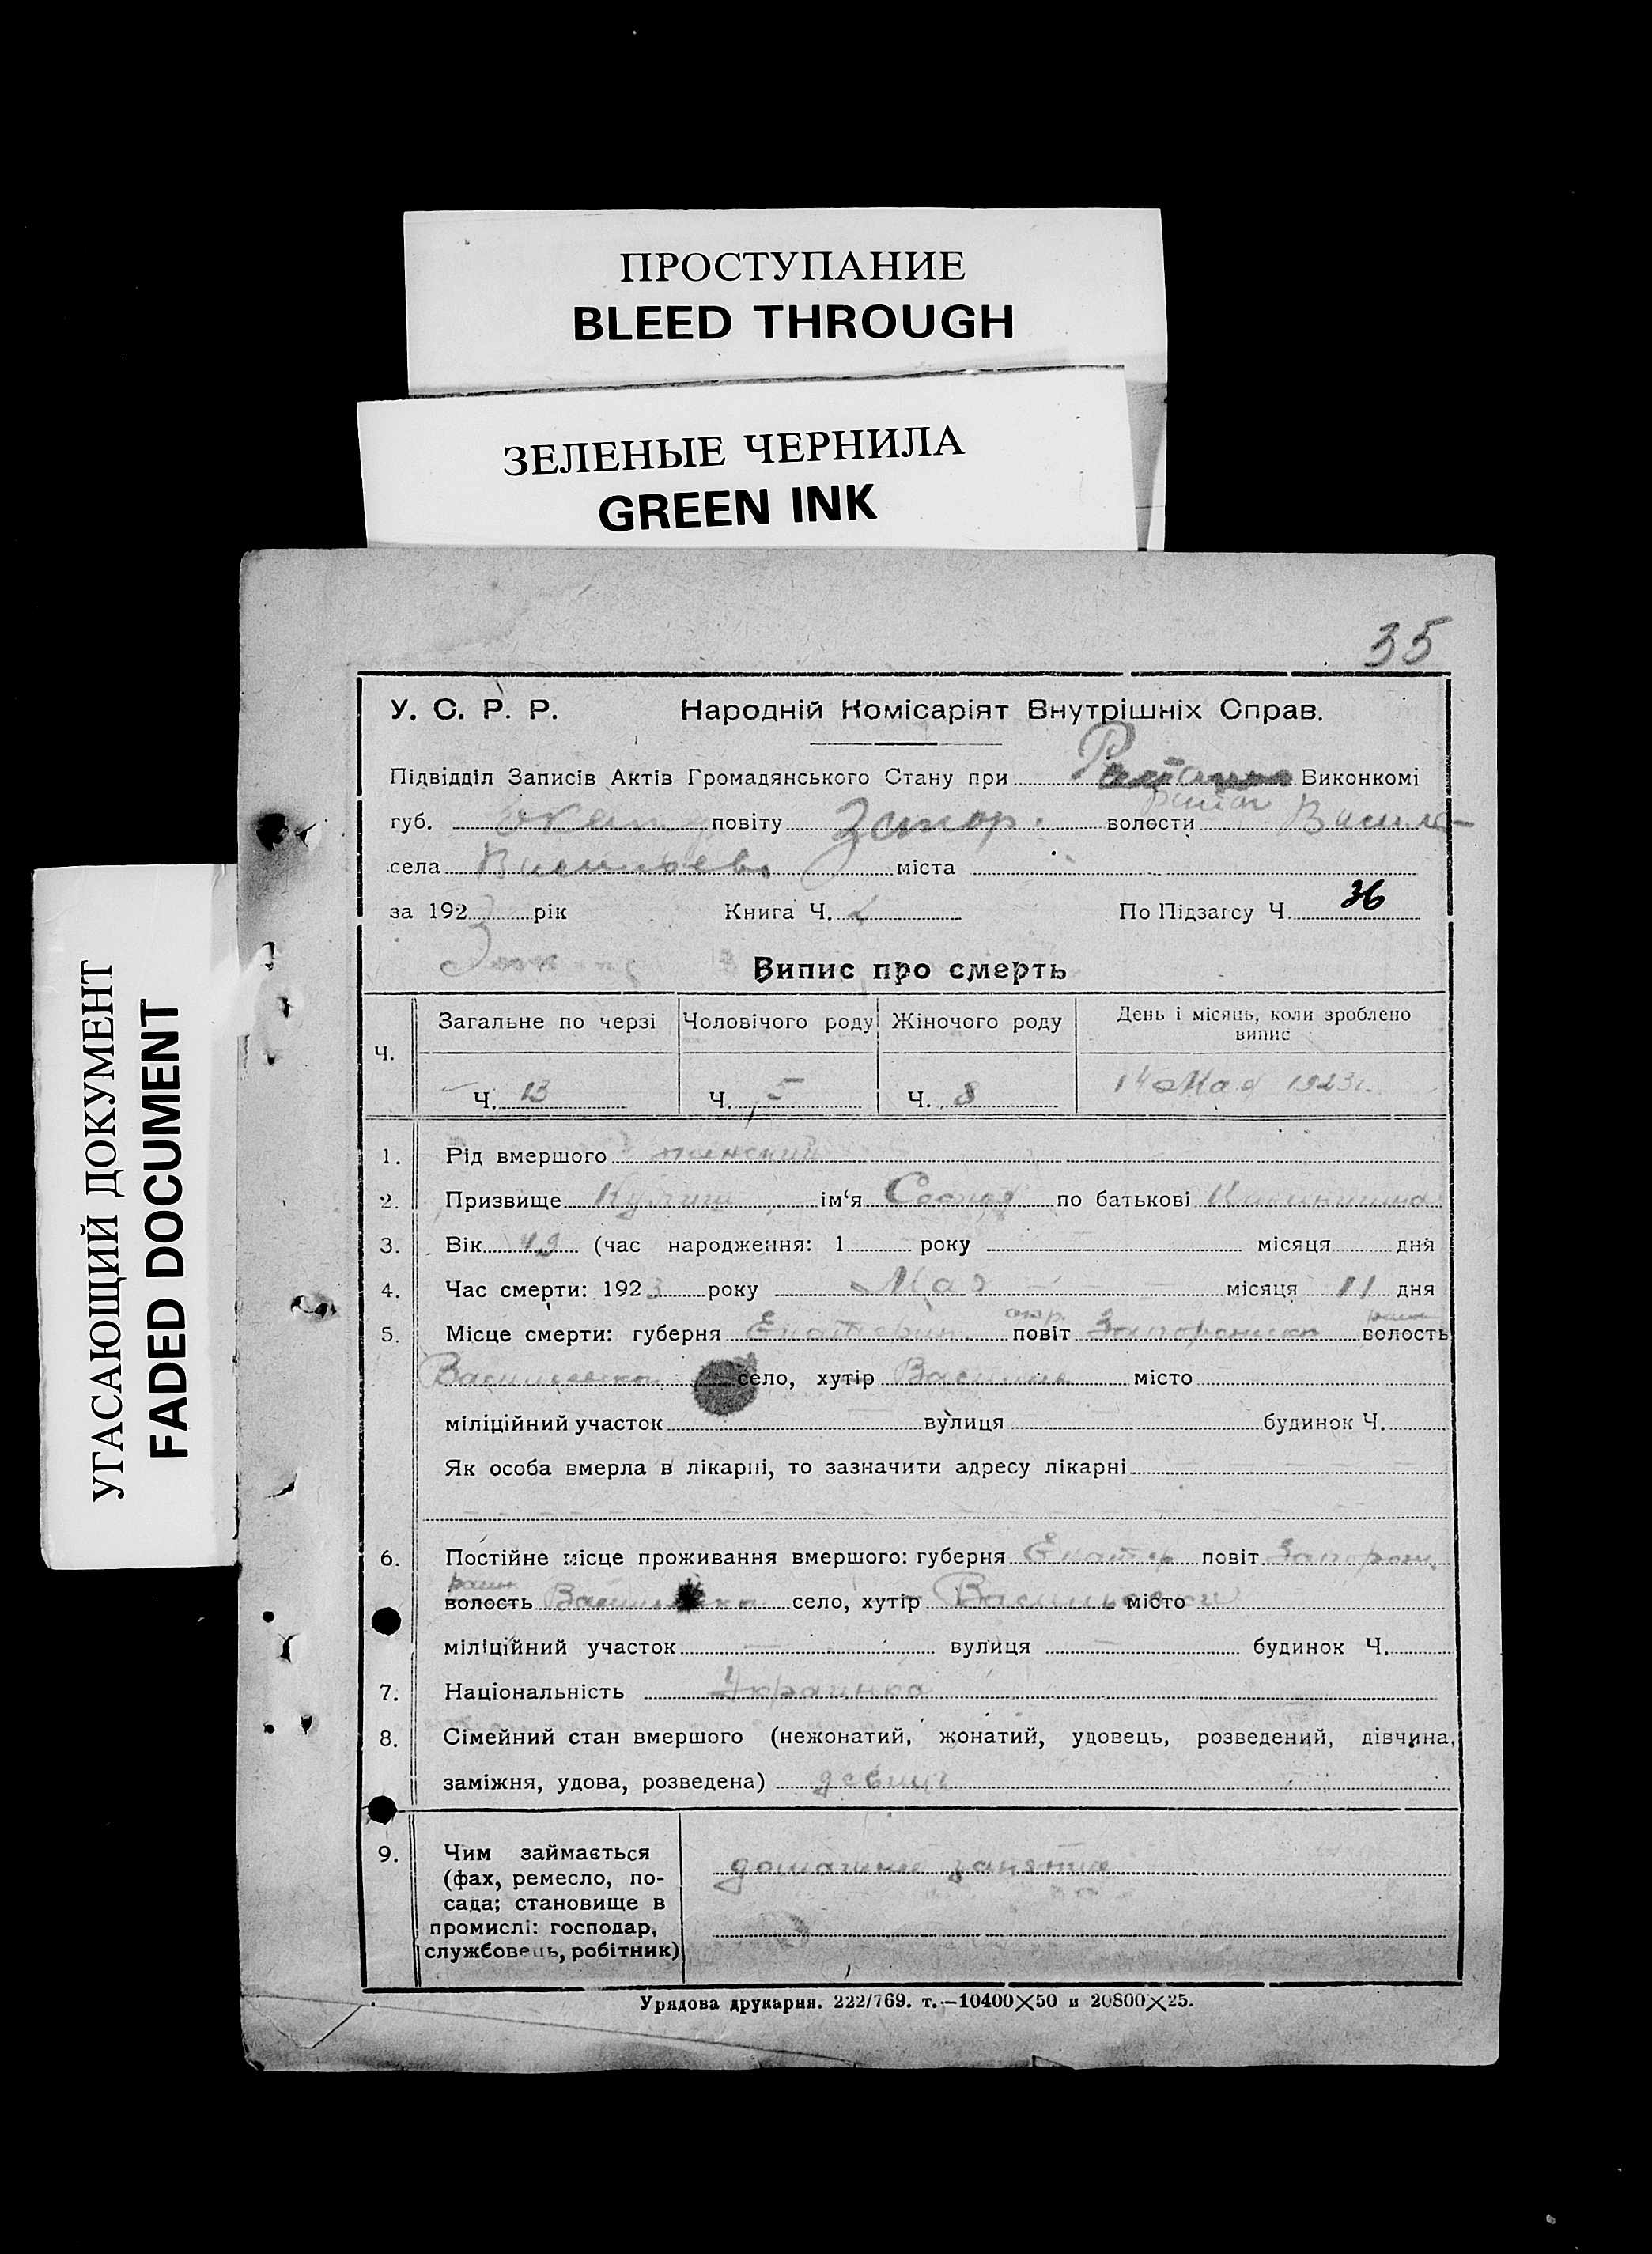 ПРОСТУПАНИЕ
BLEED THROUGH
ЗЕЛЕНЫЕ ЧЕРНИЛА
GREEN INK
УГАСАЮЩИЙ ДОКУМЕНТ
FADED DOCUMENT
35
У. С. Р. Р. Народній Комісаріят Внутрішніх Справ.
Підвідділ Записів Актів Громадянського Стану при Виконкомі
губ. повіту Запор. волости Василь-
села міста
за 192 рік Книга Ч. По Підзагсу Ч. 36
Випис про смерть
Ч. Загальне по черзі Чоловічого роду Жіночого роду День і місяць, коли зроблено
випис
Ч. 13 Ч. 5 Ч. 8 14 Мая 1923 г.
1. Рід вмершого женский
2. Призвище ім‘я София по батькові
3. Вік 49 (час народження: 1 року місяця дня
4. Час смерти: 1923 року Мая місяця 11 дня
5. Місце смерти: губерня Екатерин. повіт волость
Васильевская село, хутір Василь місто
міліційний участок вулиця будинок Ч.
Як особа вмерла в лікарні, то зазначити адресу лікарні
6. Постійне місце проживання вмершого: губерня Екатер повіт Запорож.
волость село, хутір місто
міліційний участок вулиця будинок Ч.
7. Національність Украинка
8. Сімейний стан вмершого (нежонатий, жонатий, удовець, розведений, дівчина,
заміжня, удова, розведена)
9. Чим займається
(фах, ремесло, по-
сада; становище в
промислі: господар,
службовець, робітник)
Урядова друкарня. 222/769. т.—10400×50 и 20800×25.